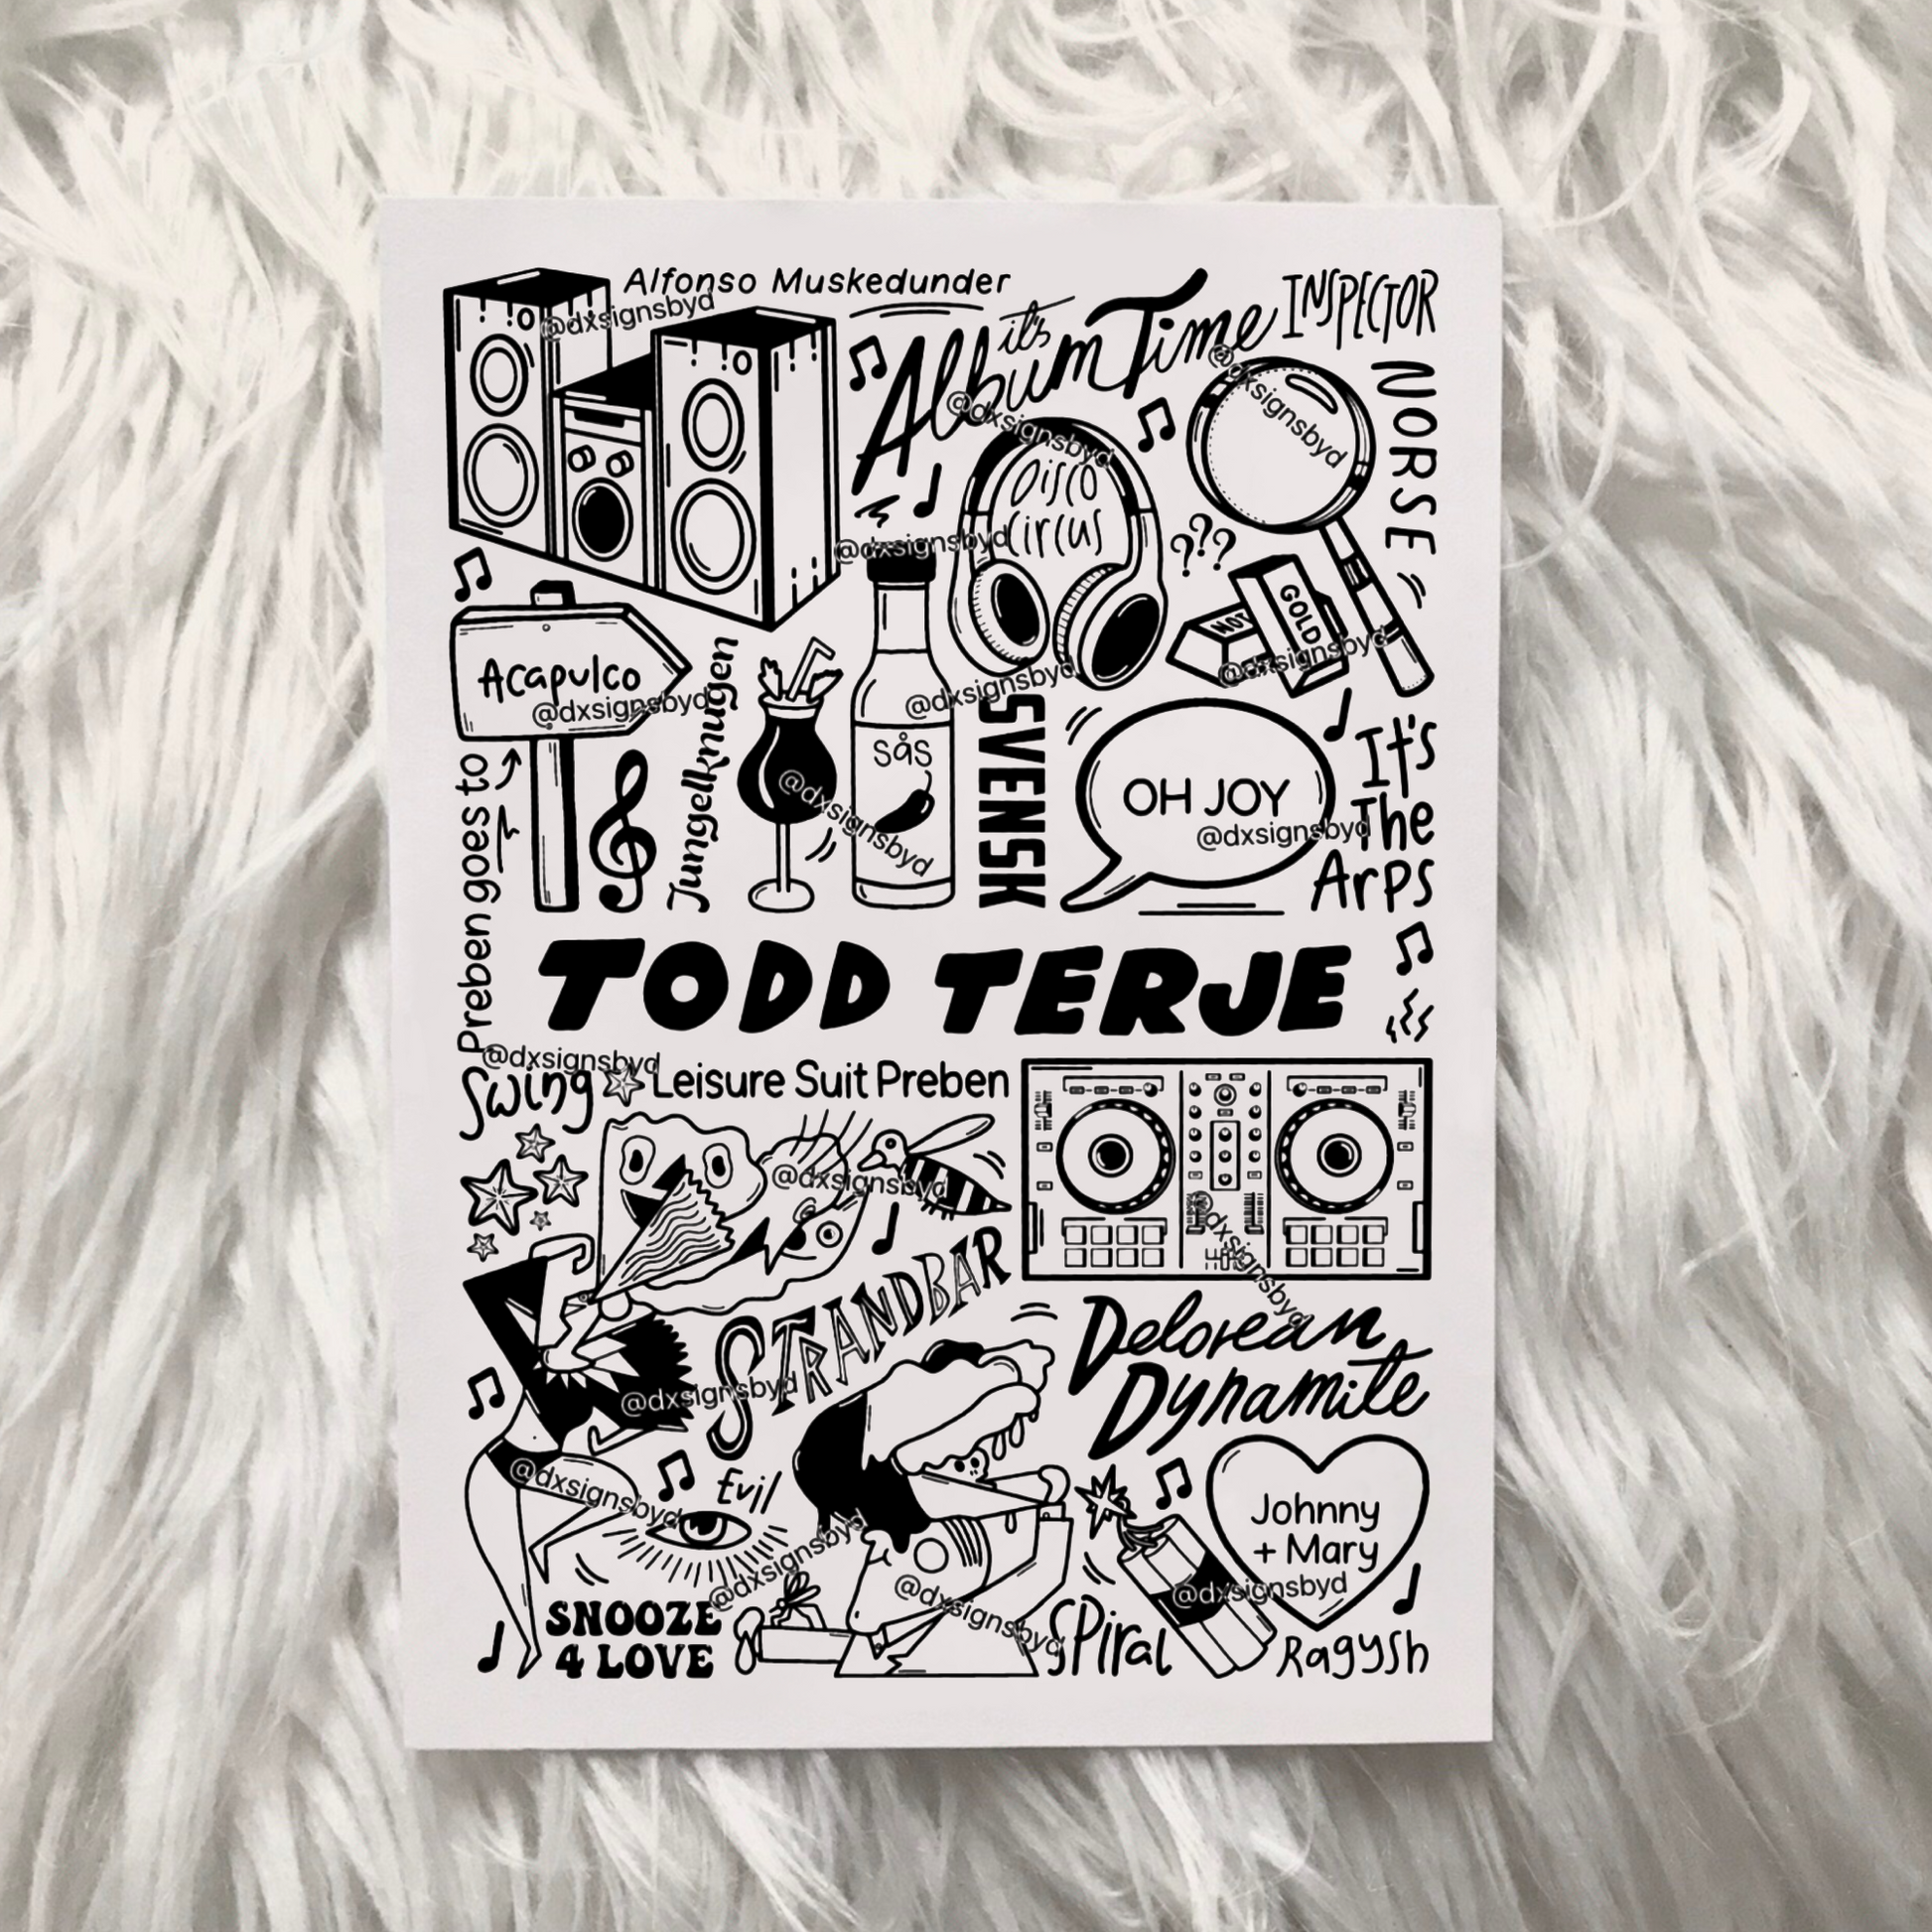 Alfonso Muskedunder
@dxsignsbyd
it's
Album Time
INSPECTOR
NORSE
@dxsignsbyd
@dxsignsbyd
Disco
Circus
@dxsignsbyd
???
NOT
GOLD
@dxsignsbyd
Acapulco
@dxsignsbyd
Preben goes to
Jungelknugen
sås
@dxsignsbyd
@dxsignsbyd
SVENSK
OH JOY
@dxsignsbyd
It's
The
Arps
TODD TERJE
@dxsignsbyd
Swing
Leisure Suit Preben
@dxsignsbyd
@dxsignsbyd
STRANDBAR
@dxsignsbyd
Delorean
Dynamite
@dxsignsbyd
Evil
@dxsignsbyd
@dxsignsbyd
Johnny
+ Mary
@dxsignsbyd
SNOOZE
4 LOVE
Spiral
Ragysh